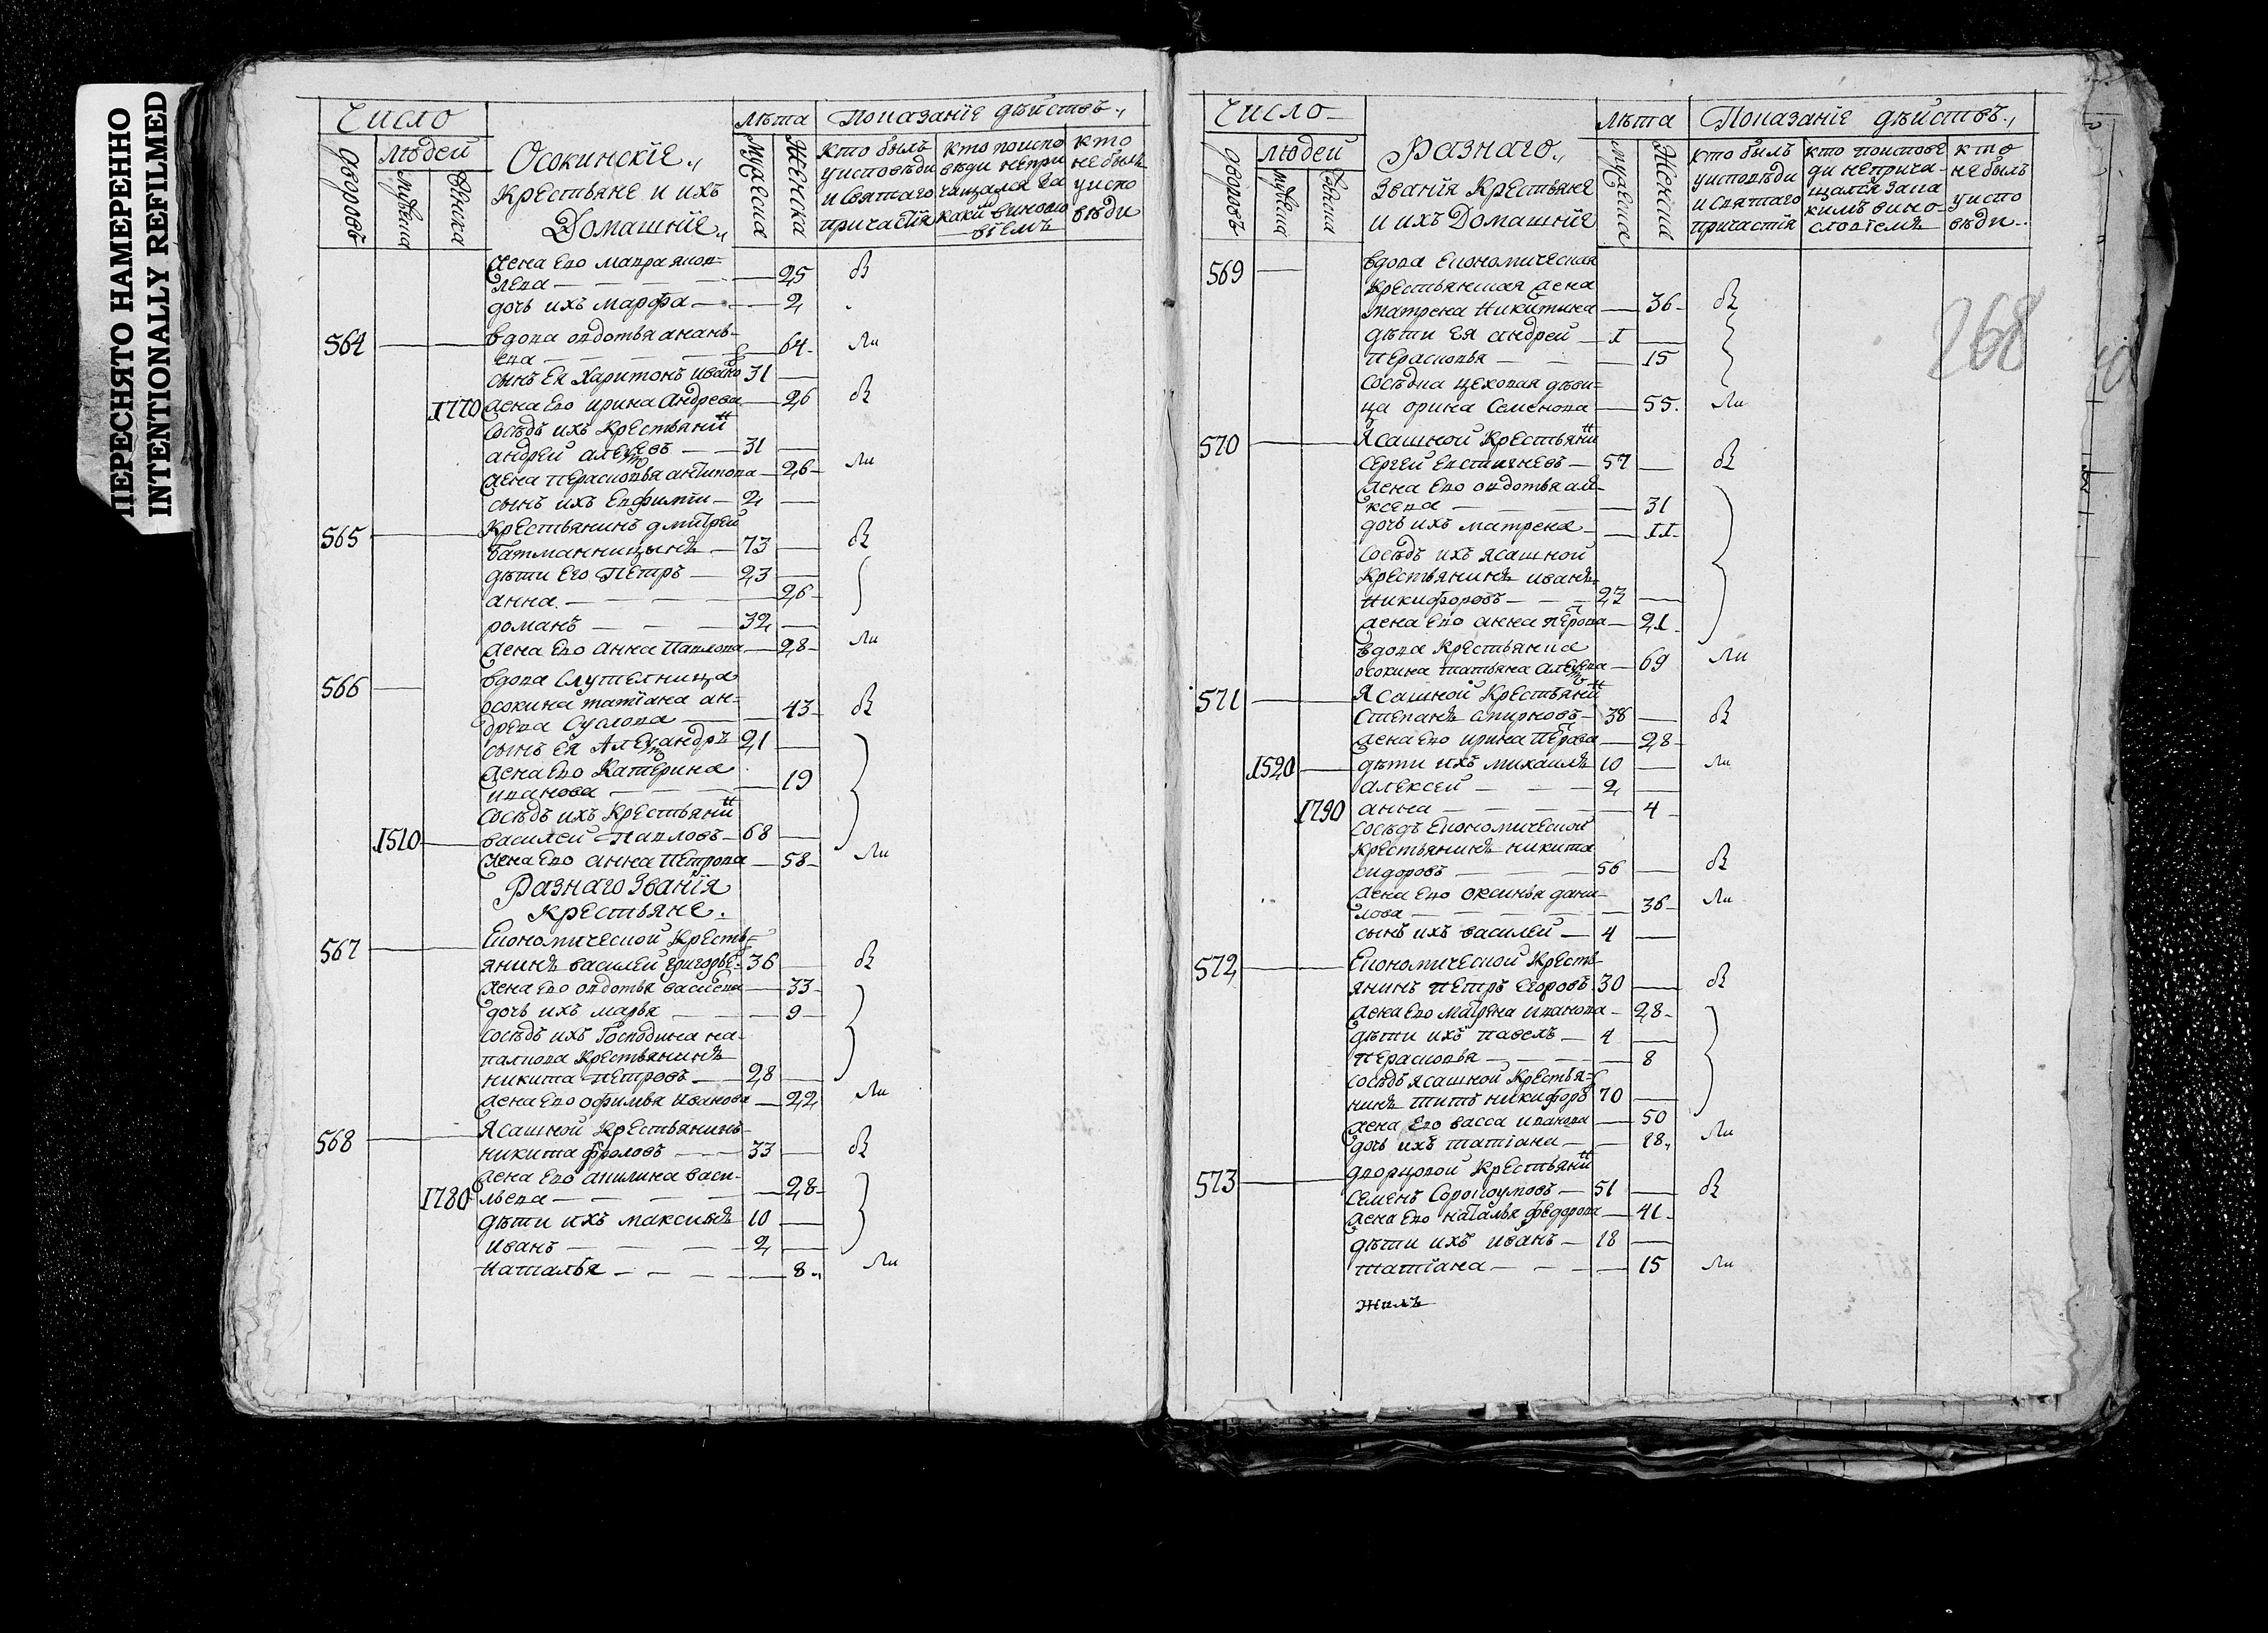 ПЕРЕСНЯТО НАМЕРЕННО
INTENTIONALLY REFILMED
Число
Людей
Дворовъ
Мужеска
Женска
Осокинскїе
Крестьяне и ихъ
Домашнїе
Лѣта
Мужеска
Женска
Показанїе дѣйствъ
кто былъ
у исповѣди
и святаго
причастїя
кто по испо
вѣди непри
чащался за
каки виносло
вїемъ
кто
не былъ
у испо
вѣди
жена ево мавра яков=
лева 25
дочь ихъ марфа 2
564 вдова овдотья анань=
ева 64
сынъ ея Харитонъ Ивано 31
1770 жена ево ирина Андреева 26
Сосѣдъ ихъ Крестьянин
андрей алексѣевъ 31
жена перасковья антипова 26
сынъ ихъ Евфимти 2
565 Крестьянинъ дмитрей
батманницынъ 73
дѣти Его Петръ 23
анна 26
романъ 32
жена ево анна Павлова 28
566 вдова Служителница
осокина татїана ан=
дреева Суслова 43
сынъ ея Александръ 21
жена ево Катерина
иванова 19
Сосѣдъ ихъ Крестьянин
1510 василей Павловъ 68
жена ево анна Петрова 58
Разнаго Званїя
Крестьяне.
567 Економической Кресть=
янинъ василей григорье 36
жена ево овдотья васиева 33
дочь ихъ марья 9
сосѣдъ ихъ Господина на
палкова Крестьянинъ
никита Петровъ 28
жена ево офимья Иванова 22
568 Ясашной Крестьянинъ
никита фроловъ 33
жена ево акилина васи=
1780 льева 28
дѣти ихъ максимъ 10
Иванъ 2
Наталья 8
Число
Людей
Дворовъ
Мужеска
Женска
Разнаго
Званїя Крестьяне
и ихъ Домашнїе
Лѣта
Мужеска
Женска
Показанїе дѣйствъ
кто былъ
у исповѣди
и святаго
причастїя
кто по исповѣ
ди неприча-
щался за ка
кимъ вино-
словїемъ
кто
не былъ
у испо
вѣди
268
569 вдова економическая
Крестьянская жена
матрена Никитина 36
дѣти ея андрей 1
Перасковья 15
Сосѣдка цеховая дѣви=
ца орина Семенова 55
570 Ясашной Крестьянин
Сергей Евстигневъ 57
жена ево овдотья але=
ксева 31
дочь ихъ матрена 11
Сосѣдъ ихъ ясашной
Крестьянинъ иванъ
Никифоровъ 23
жена ево анна петрова 21
вдова Крестьянка
осокина татьяна алексеева 69
571 Ясашной Крестьянин
Степанъ смирновъ 38
жена ево ирина Петрова 28
1520 дѣти ихъ михаилъ 10
Алексей 2
1790 анна 4
Сосѣдъ Економической
Крестьянинъ никита
сидоровъ 56
жена ево оксинья дани
лова 36
сынъ ихъ василей 4
572 Економической Кресть
янинъ Петръ Егоровъ 30
жена ево матрена иванова 28
дѣти ихъ павелъ 4
Перасковья 8
сосѣдъ ясашной Крестья=
нинъ титъ никифоръ 70
жена ево васса иванова 50
дочь ихъ татїана 18
573 дворцовой Крестьянин
Семенъ Сорокоумовъ 51
жена ево наталья федорова 41
дѣти ихъ иванъ 18
татїана 15